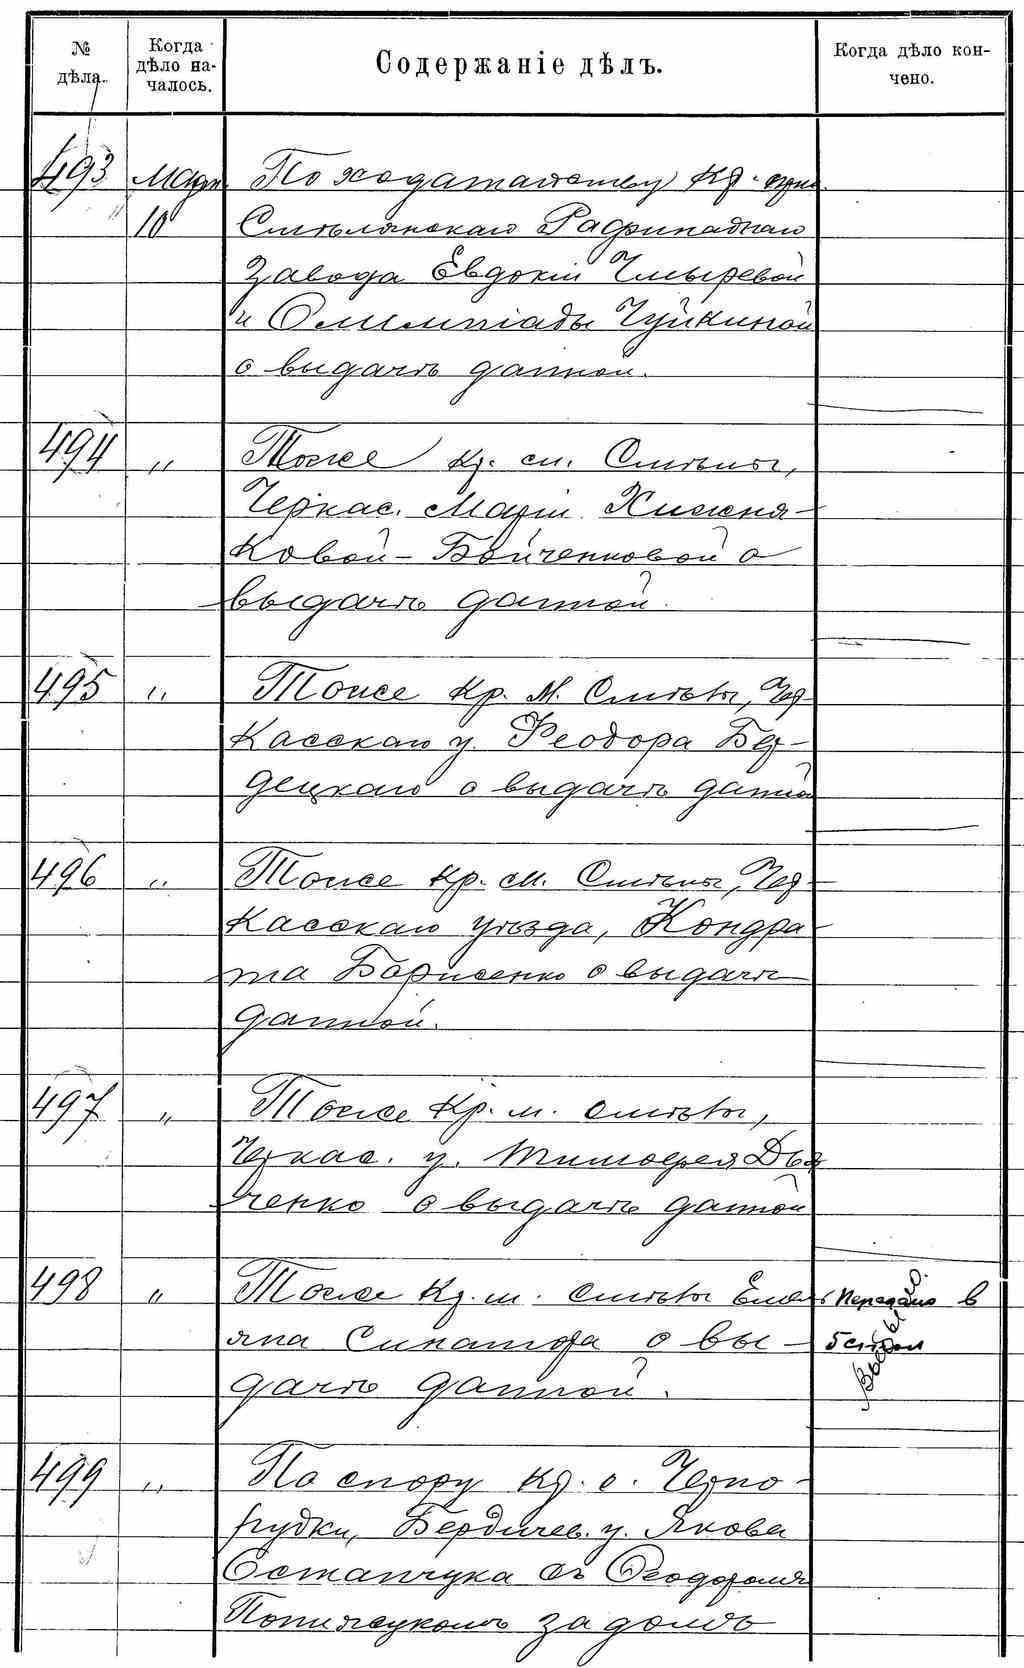 № дѣла.
Когда дѣло началось.
Содержаніе дѣлъ.
Когда дѣло кончено.
493 Марта По ходатайству Кр.
10 Смѣлянскаго Рафинаднаго
завода Евдокіи Чмыревой
и Олимпіады Чуйкиной
о выдачѣ данной.
494 " Тоже кр. м. Смѣлы,
Черкас. Маріи Хижня-
ковой-Бойченковой о
выдачѣ данной.
495 " Тоже Кр. м. Смѣлы, Чер-
касскаго у. Феодора Бер-
децкаго о выдачѣ данной
496 " Тоже кр. м. Смѣлы, Чер-
касскаго уѣзда, Кондра-
та Борисенко о выдачѣ
данной.
497 " Тоже Кр. м. Смѣлы,
Черкас. у. Тимофея Дья
ченко о выдачѣ данной
498 " Тоже Кр. м. Смѣлы Емель Передано в
яна Синатора о вы- 5 стол
дачѣ данной.
499 " По спору кр. с. Черно-
рудки, Бердичев. у. Якова
Остапчука съ Феодоромъ
за домъ